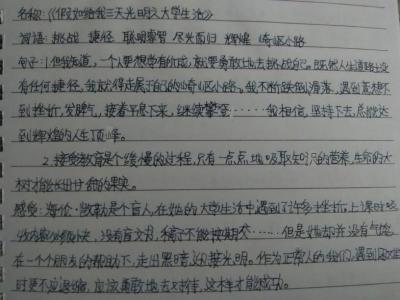 名称:《假如给我三天光明之大学生活》
词语:挑战 捷径 聪明睿智 尽兴而归 辉煌 崎岖小路
句子:1.但我知道,一个人要想有所成,就要勇敢地去挑战自己。既然人生道路上没
有任何捷径,我就得走属于自己的崎岖小路。我不断跌倒,滑落,遇到意想不
到挫折,发脾气,接着平息下来,继续攀登……我相信,坚持下去,总能达
到辉煌的人生顶峰。
2.接受教育是个缓慢的过程,只有一点点地吸取知识的营养,生命的大
树才能长出甘甜的果实。
感受:海伦·凯勒是个盲人,在她的大学生活中遇到了许多挫折,上课时吸
收内容必须快,没有盲文书,稿子不能按期交……但是她却并没有气馁
在一个个朋友的帮助下,走出黑暗,迎接光明。作为正常人的我们,遇到困难
时更不应退缩,应该勇敢地去对待,这样才能成功。